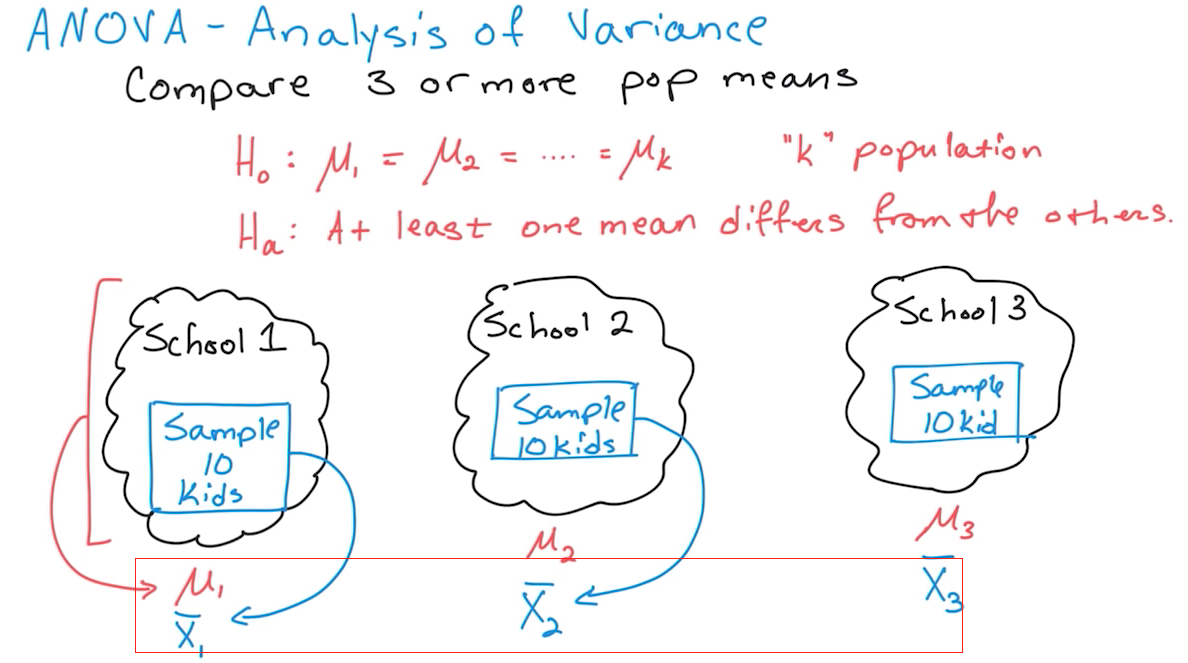 ANOVA - Analysis of Variance
Compare 3 or more pop means
H₀ : μ₁ = μ₂ = .... = μₖ "k" population
Hₐ : At least one mean differs from the others.
School 1
Sample
10
Kids
μ₁
X̄₁
School 2
Sample
10 kids
μ₂
X̄₂
School 3
Sample
10 kid
μ₃
X̄₃